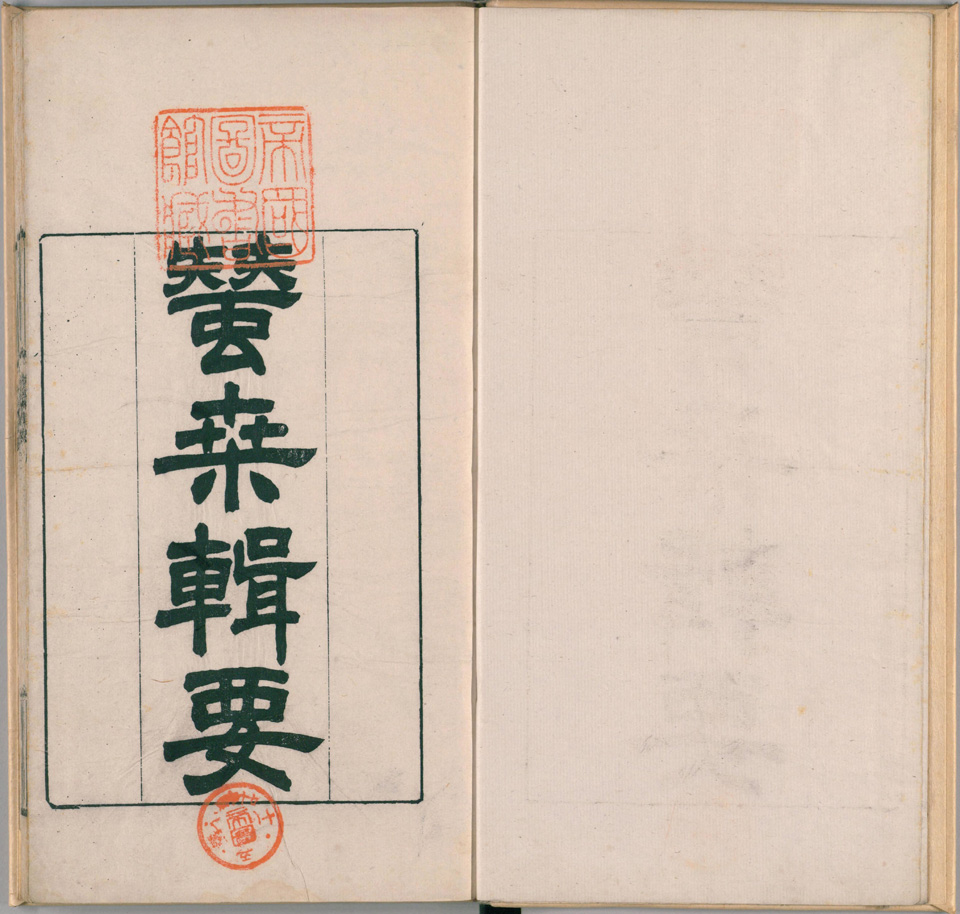 帝國
圖書
館藏
蠶桒輯要